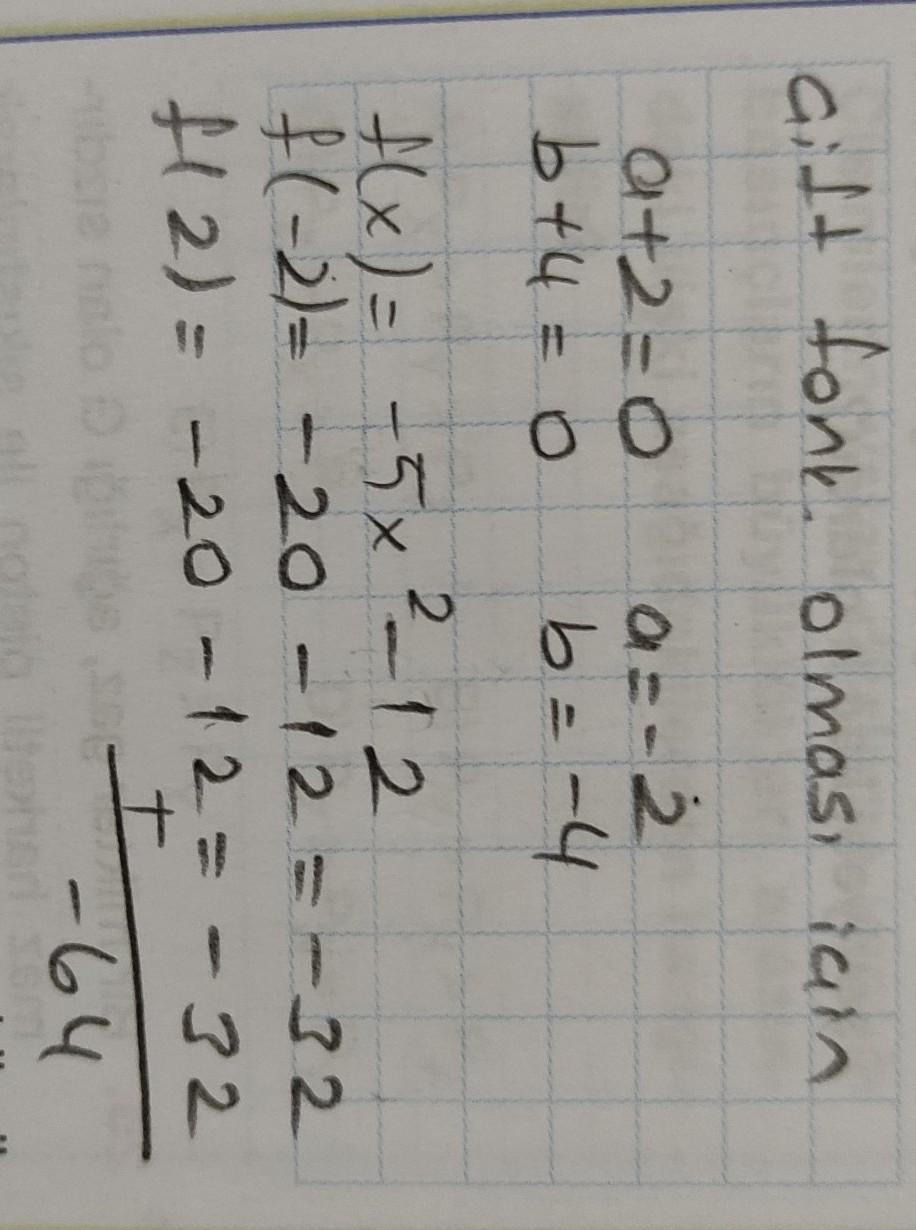 Çift fonk. olması için
a+2=0 a=-2
b+4=0 b=-4
f(x)= -5x²-12
f(-2)= -20-12=-32
f(2)= -20-12=-32
+
-64